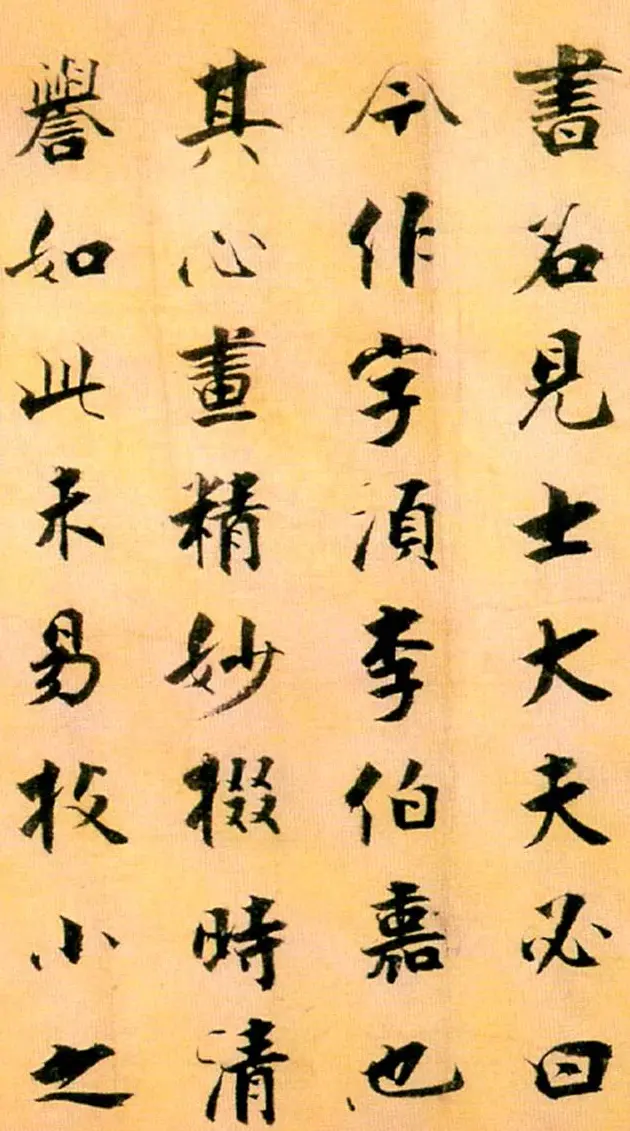 書名見士大夫必曰
今作字須李伯嘉也
其心畫精妙掇時清
譽如此未易枚小之